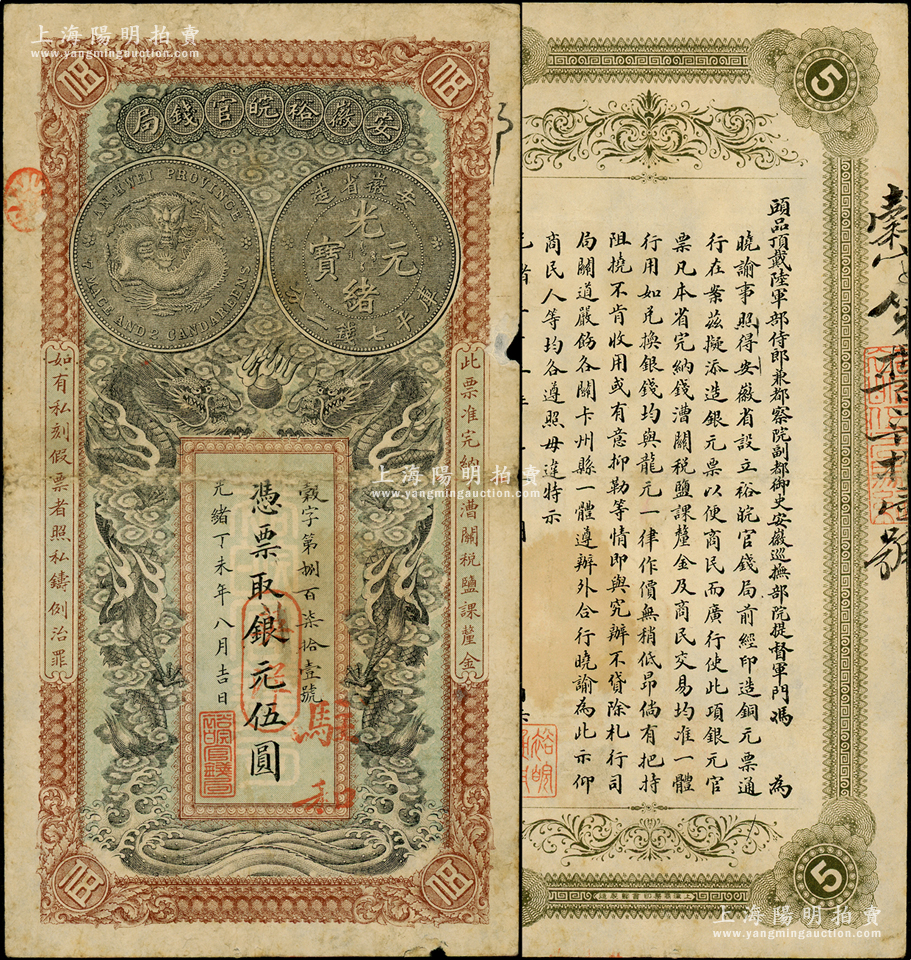 上海陽明拍賣
www.yangmingauction.com
伍
伍
安徽裕皖官錢局
AN-HWEI PROVINCE
7 MACE AND 2 CANDARINS
安徽省造
光緒元寶
庫平七錢二分
此票准完納錢漕關税鹽課釐金
如有私刻假票者照私鑄例治罪
穀字第捌百柒拾壹號
憑票取銀元伍圓
光緒丁未年八月吉日
和
伍
伍
上海陽明拍賣
www.yangmingauction.com
5
頭品頂戴陸軍部侍郎兼都察院副都御史安徽巡撫部院提督軍門馮 為
曉諭事照得安徽省設立裕皖官錢局前經印造銅元票通
行在案茲擬添造銀元票以便商民而廣行使此項銀元官
票凡本省完納錢漕關税鹽課釐金及商民交易均准一體
行用如兑換銀錢均與龍元一律作價無稍低昂倘有把持
阻撓不肯收用或有意抑勒等情即與究辦不貸除札行司
局關道嚴飭各關卡州縣一體遵辦外合行曉諭為此示仰
商民人等均各遵照毋違特示
裕皖
5
上海陽明拍賣
www.yangmingauction.com